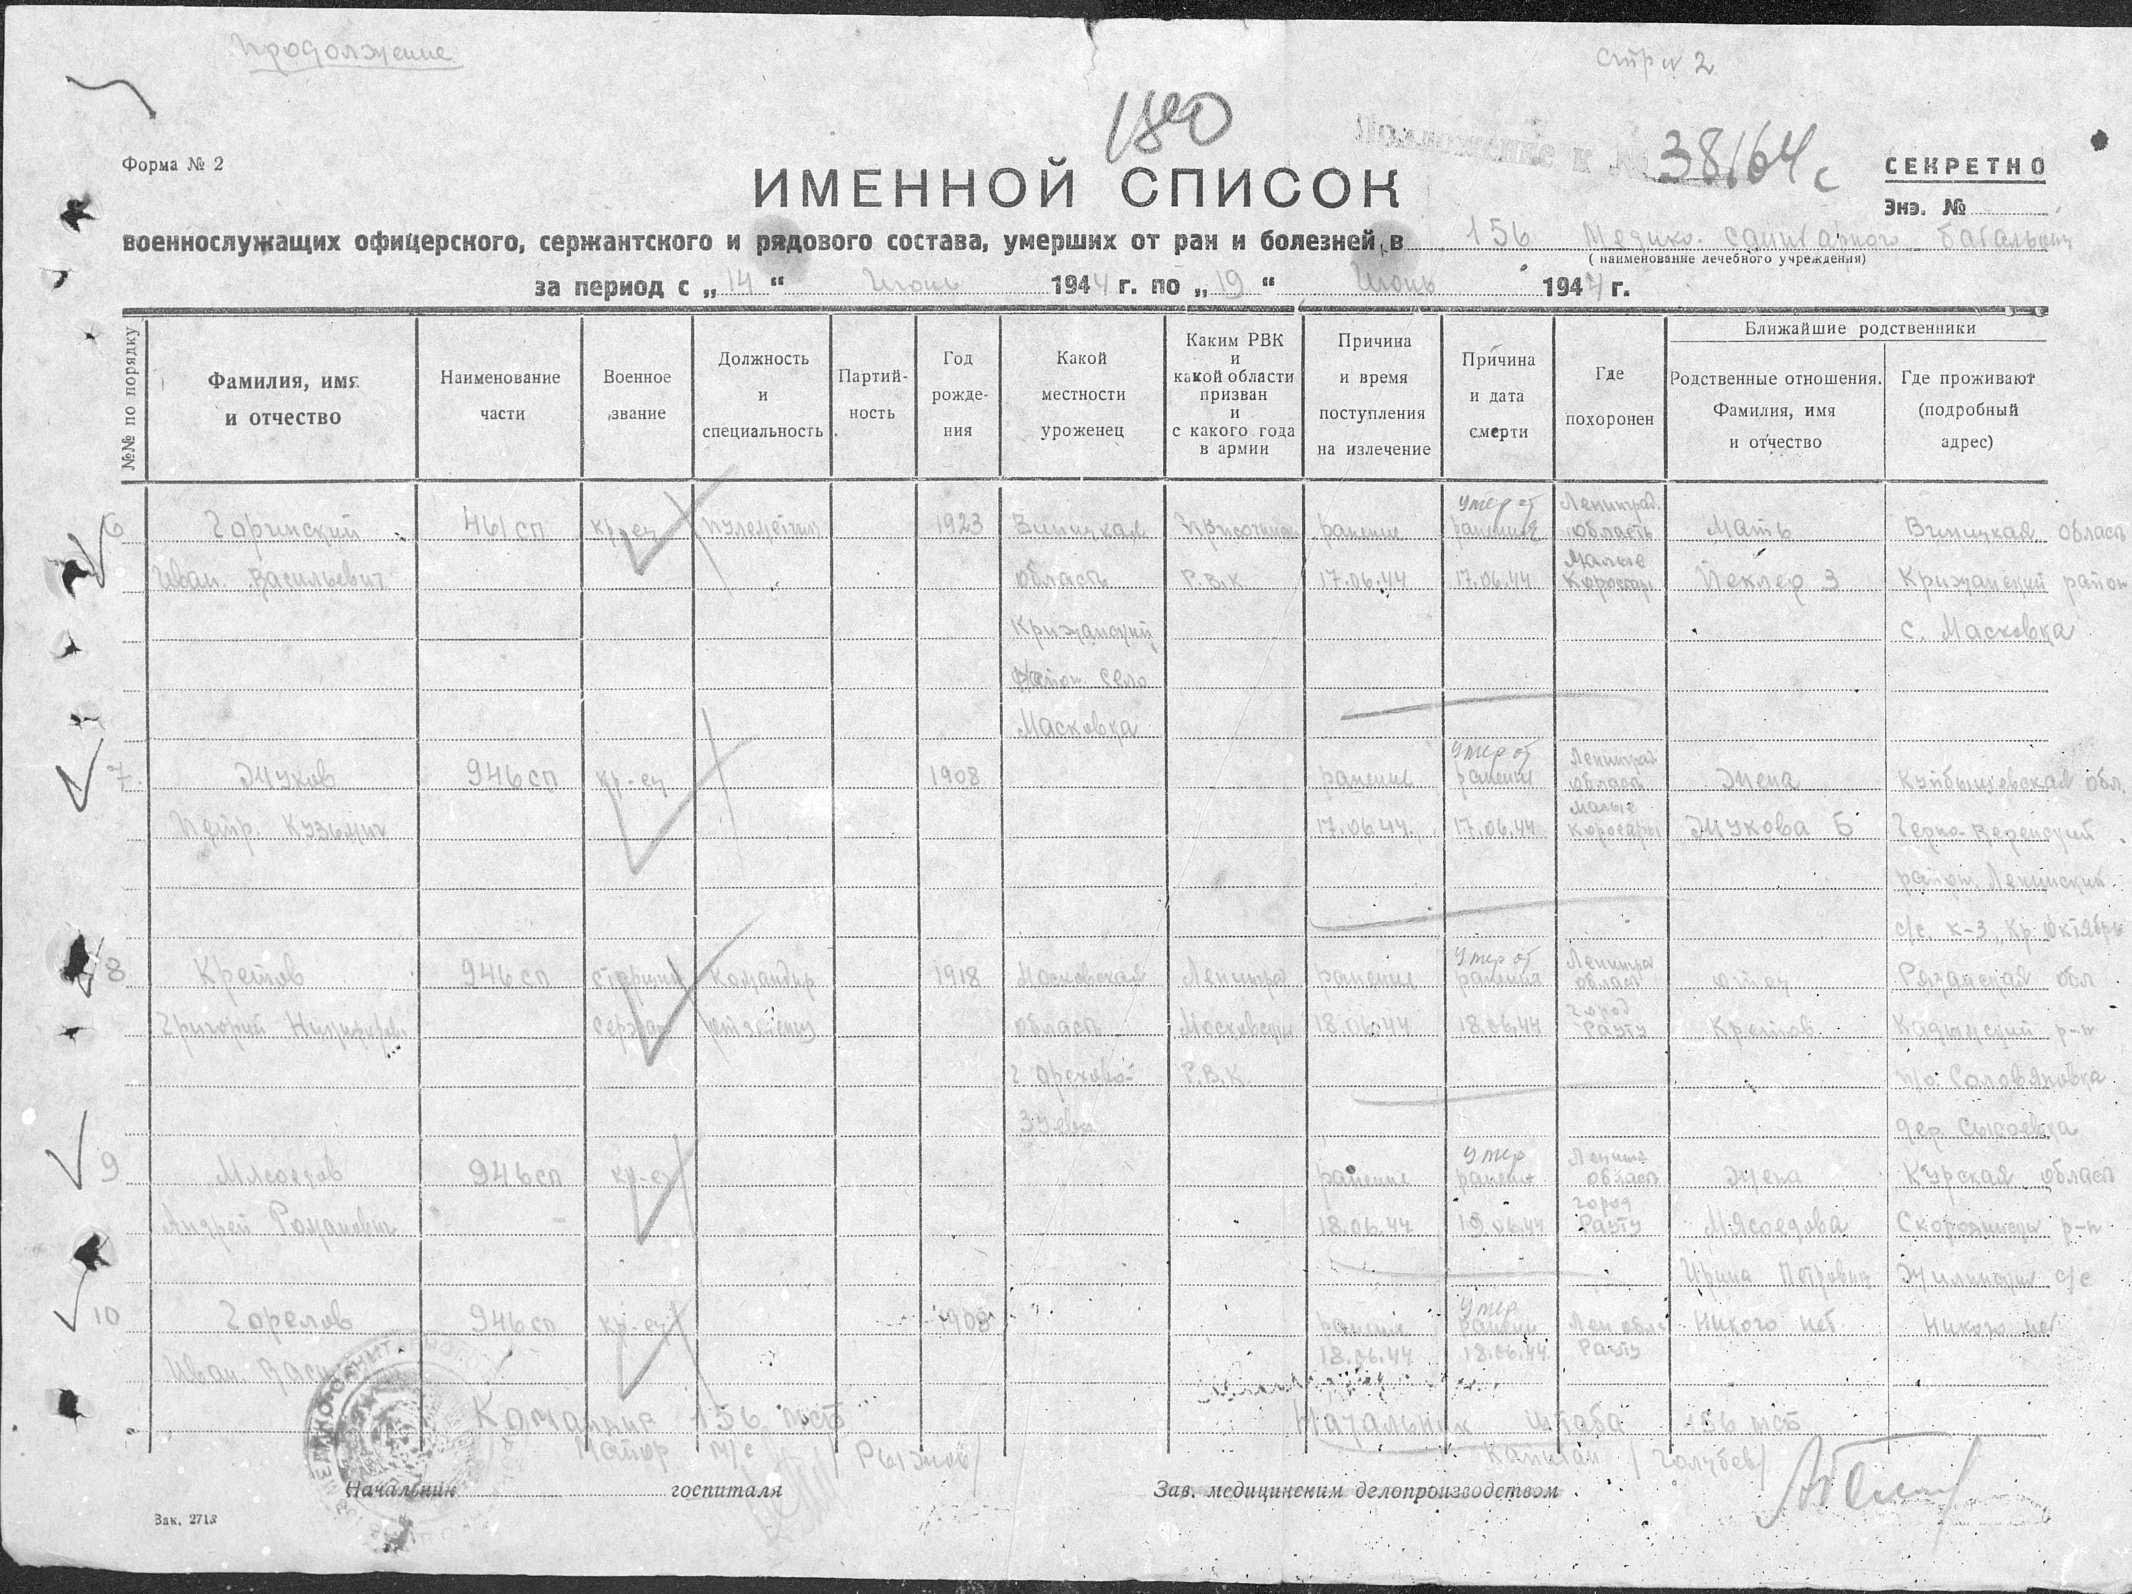 Продолжение
стр 2
180
Приложение к № 38164с
Форма № 2
СЕКРЕТНО
Экз. №
ИМЕННОЙ СПИСОК
военнослужащих офицерского, сержантского и рядового состава, умерших от ран и болезней, в 156 Медико. санитарного батальона
(наименование лечебного учреждения)
за период с „14“ Июнь 1944 г. по „19“ Июнь 1944 г.
№№ по порядку
Фамилия, имя и отчество
Наименование части
Военное звание
Должность и специальность
Партий-ность
Год рожде-ния
Какой местности уроженец
Каким РВК и какой области призван и с какого года в армии
Причина и время поступления на излечение
Причина и дата смерти
Где похоронен
Ближайшие родственники
Родственные отношения. Фамилия, имя и отчество
Где проживают (подробный адрес)
6 461 сп кр-ец 1923 ранение Умер от ранения Ленинград. область Мать Виницкая область
Иван Васильевич область Р.В.К. 17.06.44 17.06.44 Малые 3 район
с. Масковка
район село
Масковка
7. Жуков 946 сп кр-ец 1908 ранение Умер от ранения Ленинград область Жена Куйбышевская обл.
Петр Кузьмич 17.06.44. 17.06.44 Малые Жукова Б
район Ленинский
с/с. к-з Кр. Октябрь
8 Кретов 946 сп старший Командир 1918 Московская ранение Умер от ранения область отец Рязанская обл
Григорий сержан отделения область 18.06.44 18.06.44 город Рауту Кретов р-н
г. Орехово- Р.В.К. п/о Соловяновка
Зуево дер. Сысоевка
9 Мясоедов 946 сп кр-ец ранение Умер область Жена Курская область
Андрей Романович 18.06.44 город Рауту Мясоедова р-н
Ирина Петровна с/с
10 Горелов 946 сп кр-ец 1908 ранение Умер Лен обл Никого нет Никого нет
Иван 18.06.44 18.06.44 Рауту
Командир 156 мсб Начальник штаба 156 мсб
Майор м/с /Рыжов/ Капитан /Голубев/
Начальник госпиталя
Зав. медицинским делопроизводством
Зак. 2718